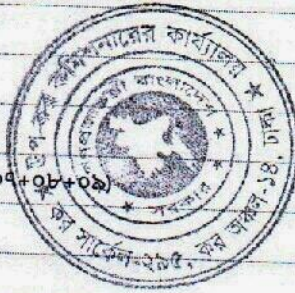 উপ কর কমিশনারের কার্য্যালয়
কর সার্কেল-২৯৫, কর অঞ্চল-১৪, ঢাকা
গণপ্রজাতন্ত্রী বাংলাদেশ
সরকার